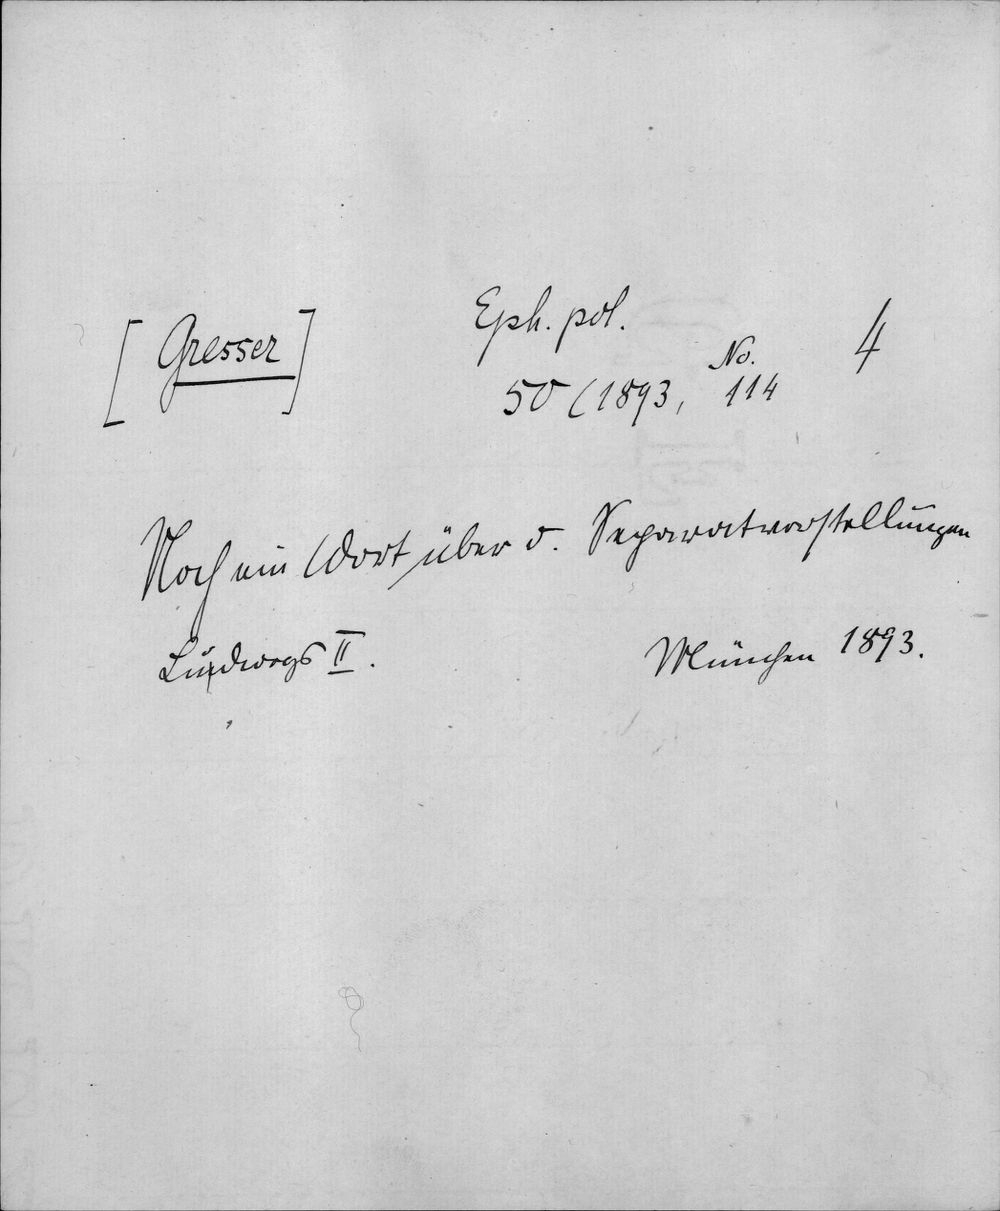 [Gresser] Eph. pol. 4
50 (1893, No. 114
Noch ein Wort über d. Separatvorstellungen
Ludwigs II. München 1893.